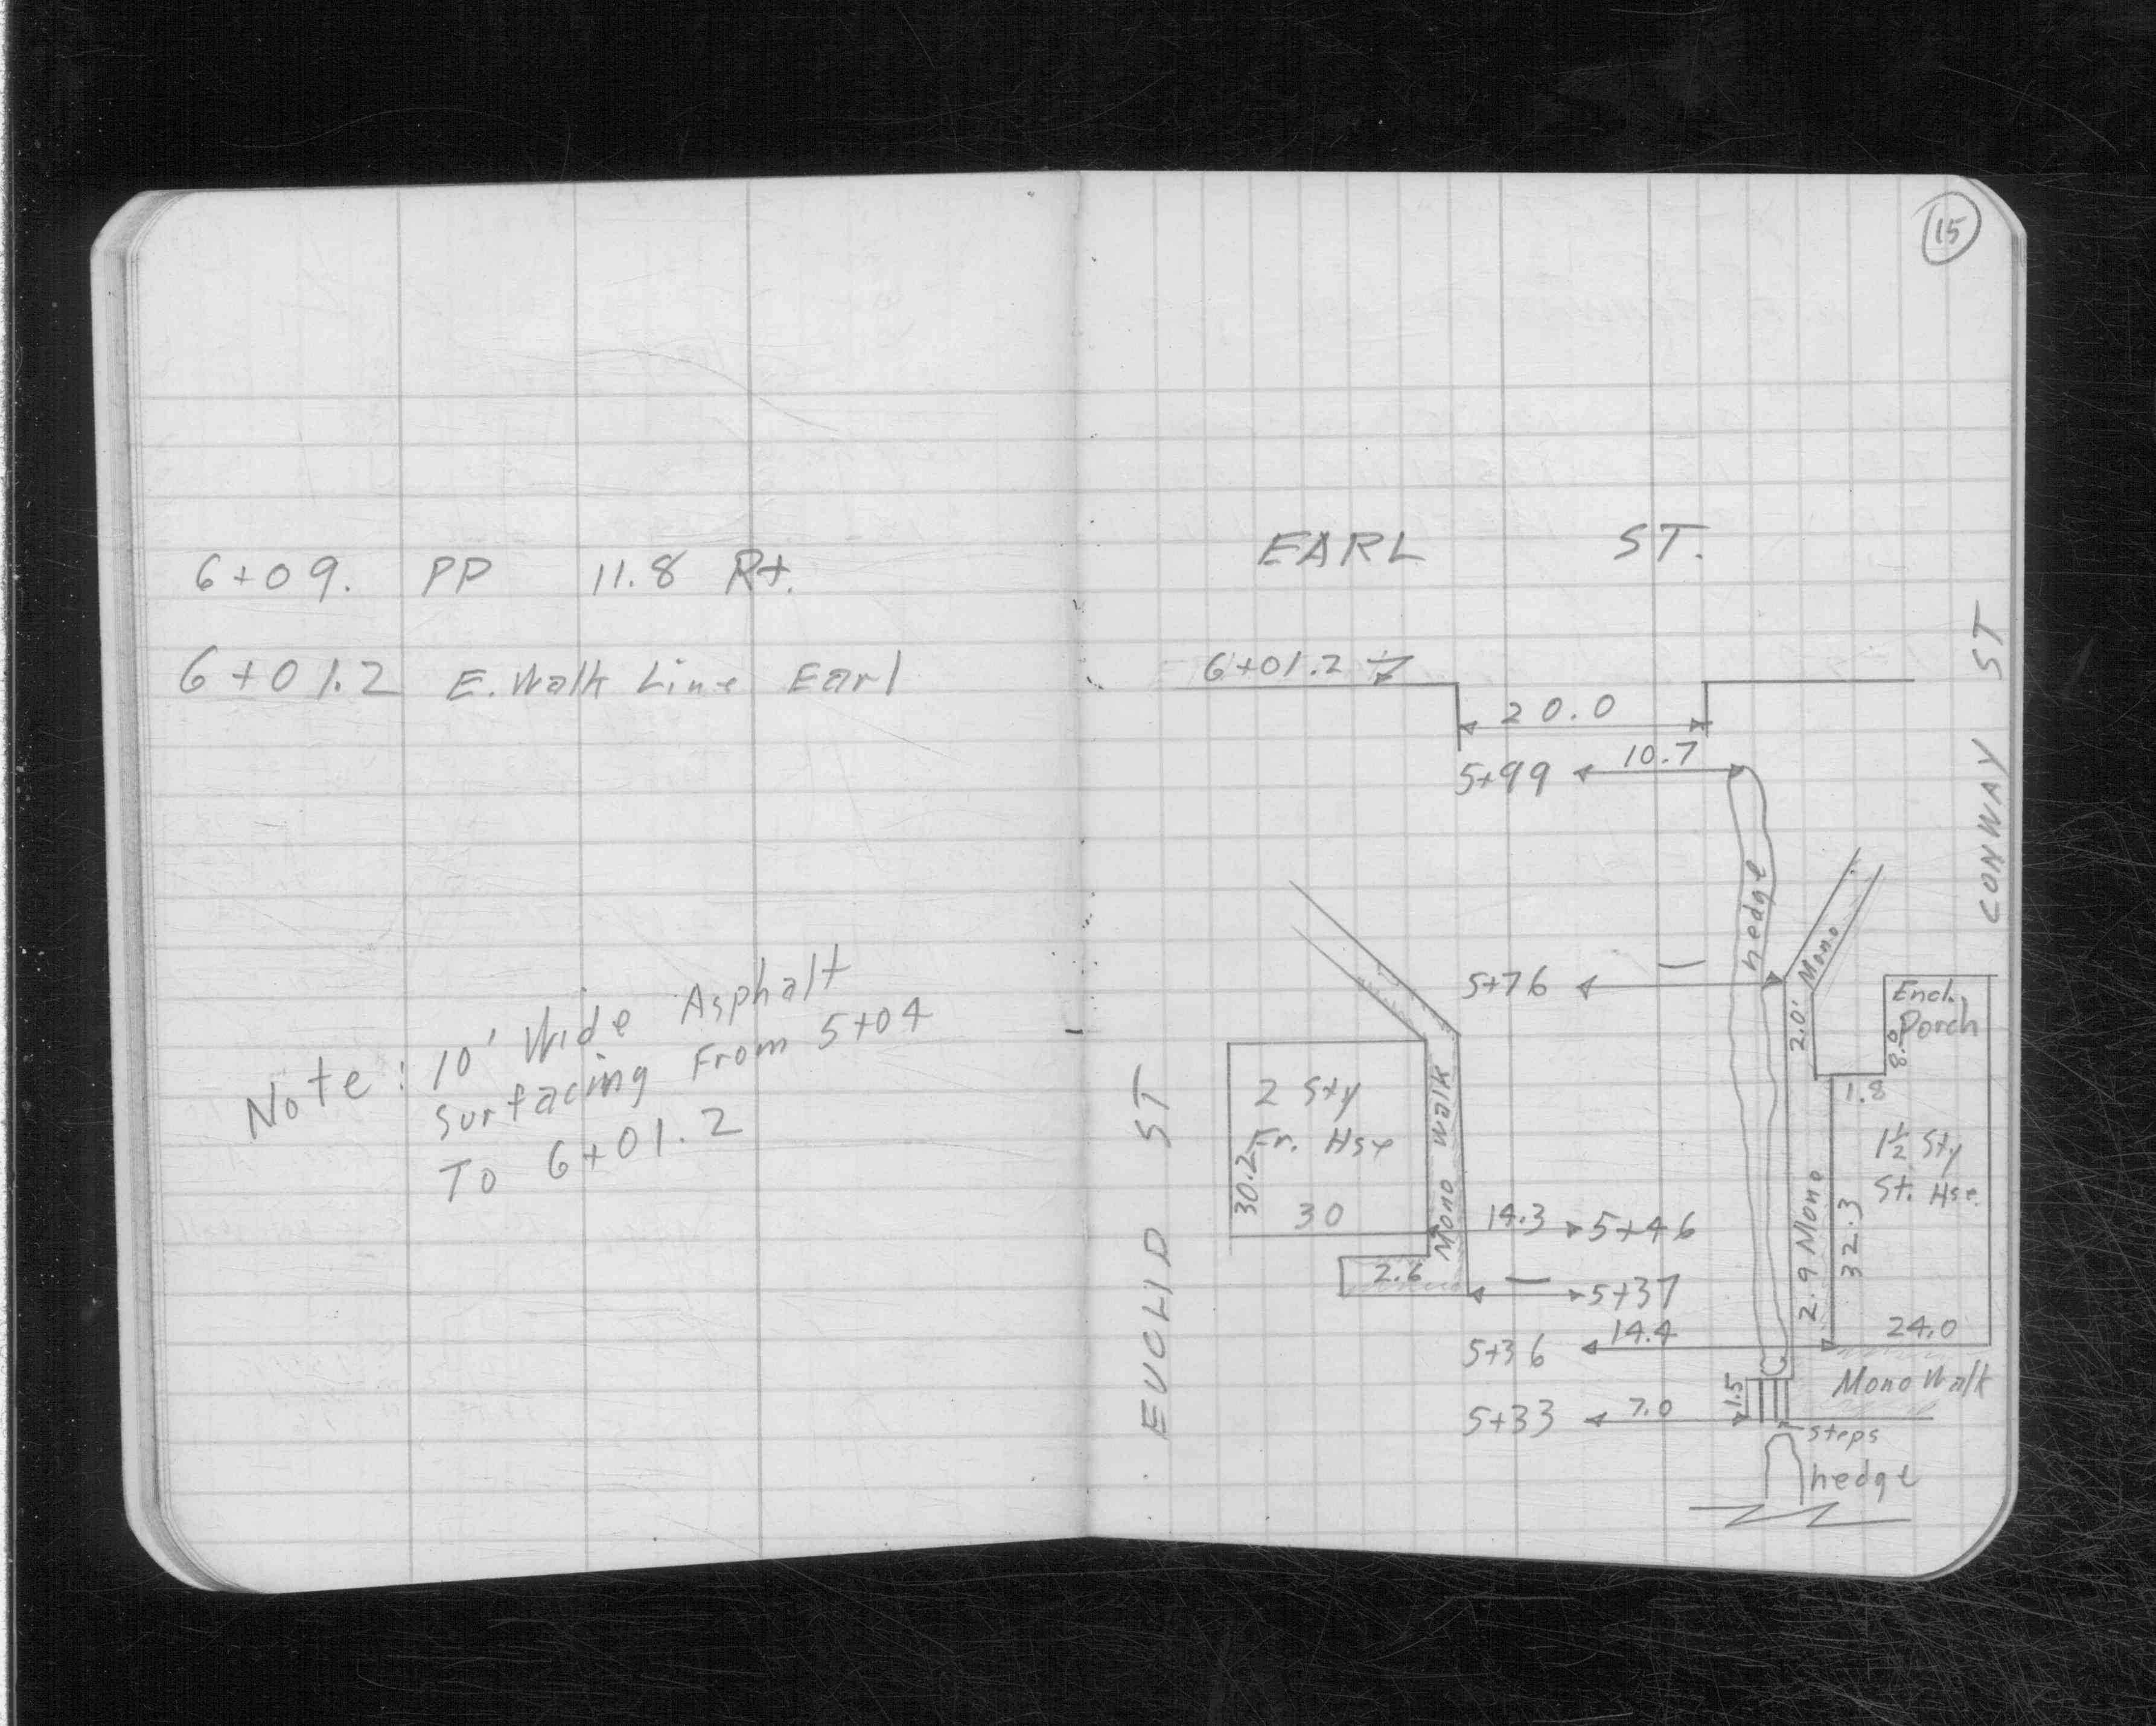 6+09. PP 11.8 Rt.
6+01.2 E. Walk Line Earl
Note: 10' Wide Asphalt
Surfacing From 5+04
To 6+01.2
15
EARL ST.
6+01.2
20.0
10.7
5+99
CONWAY ST
hedge
Mono
5+76
2.0'
Encl.
Porch
8.0
1.8
2 Sty
Fr. Hse
30.2
30
Mono Walk
EUCLID ST
1½ Sty
St. Hse.
2.9 Mono
32.3
24.0
14.3
5+46
2.6
5+37
14.4
5+36
Mono Walk
1.5
7.0
5+33
steps
hedge